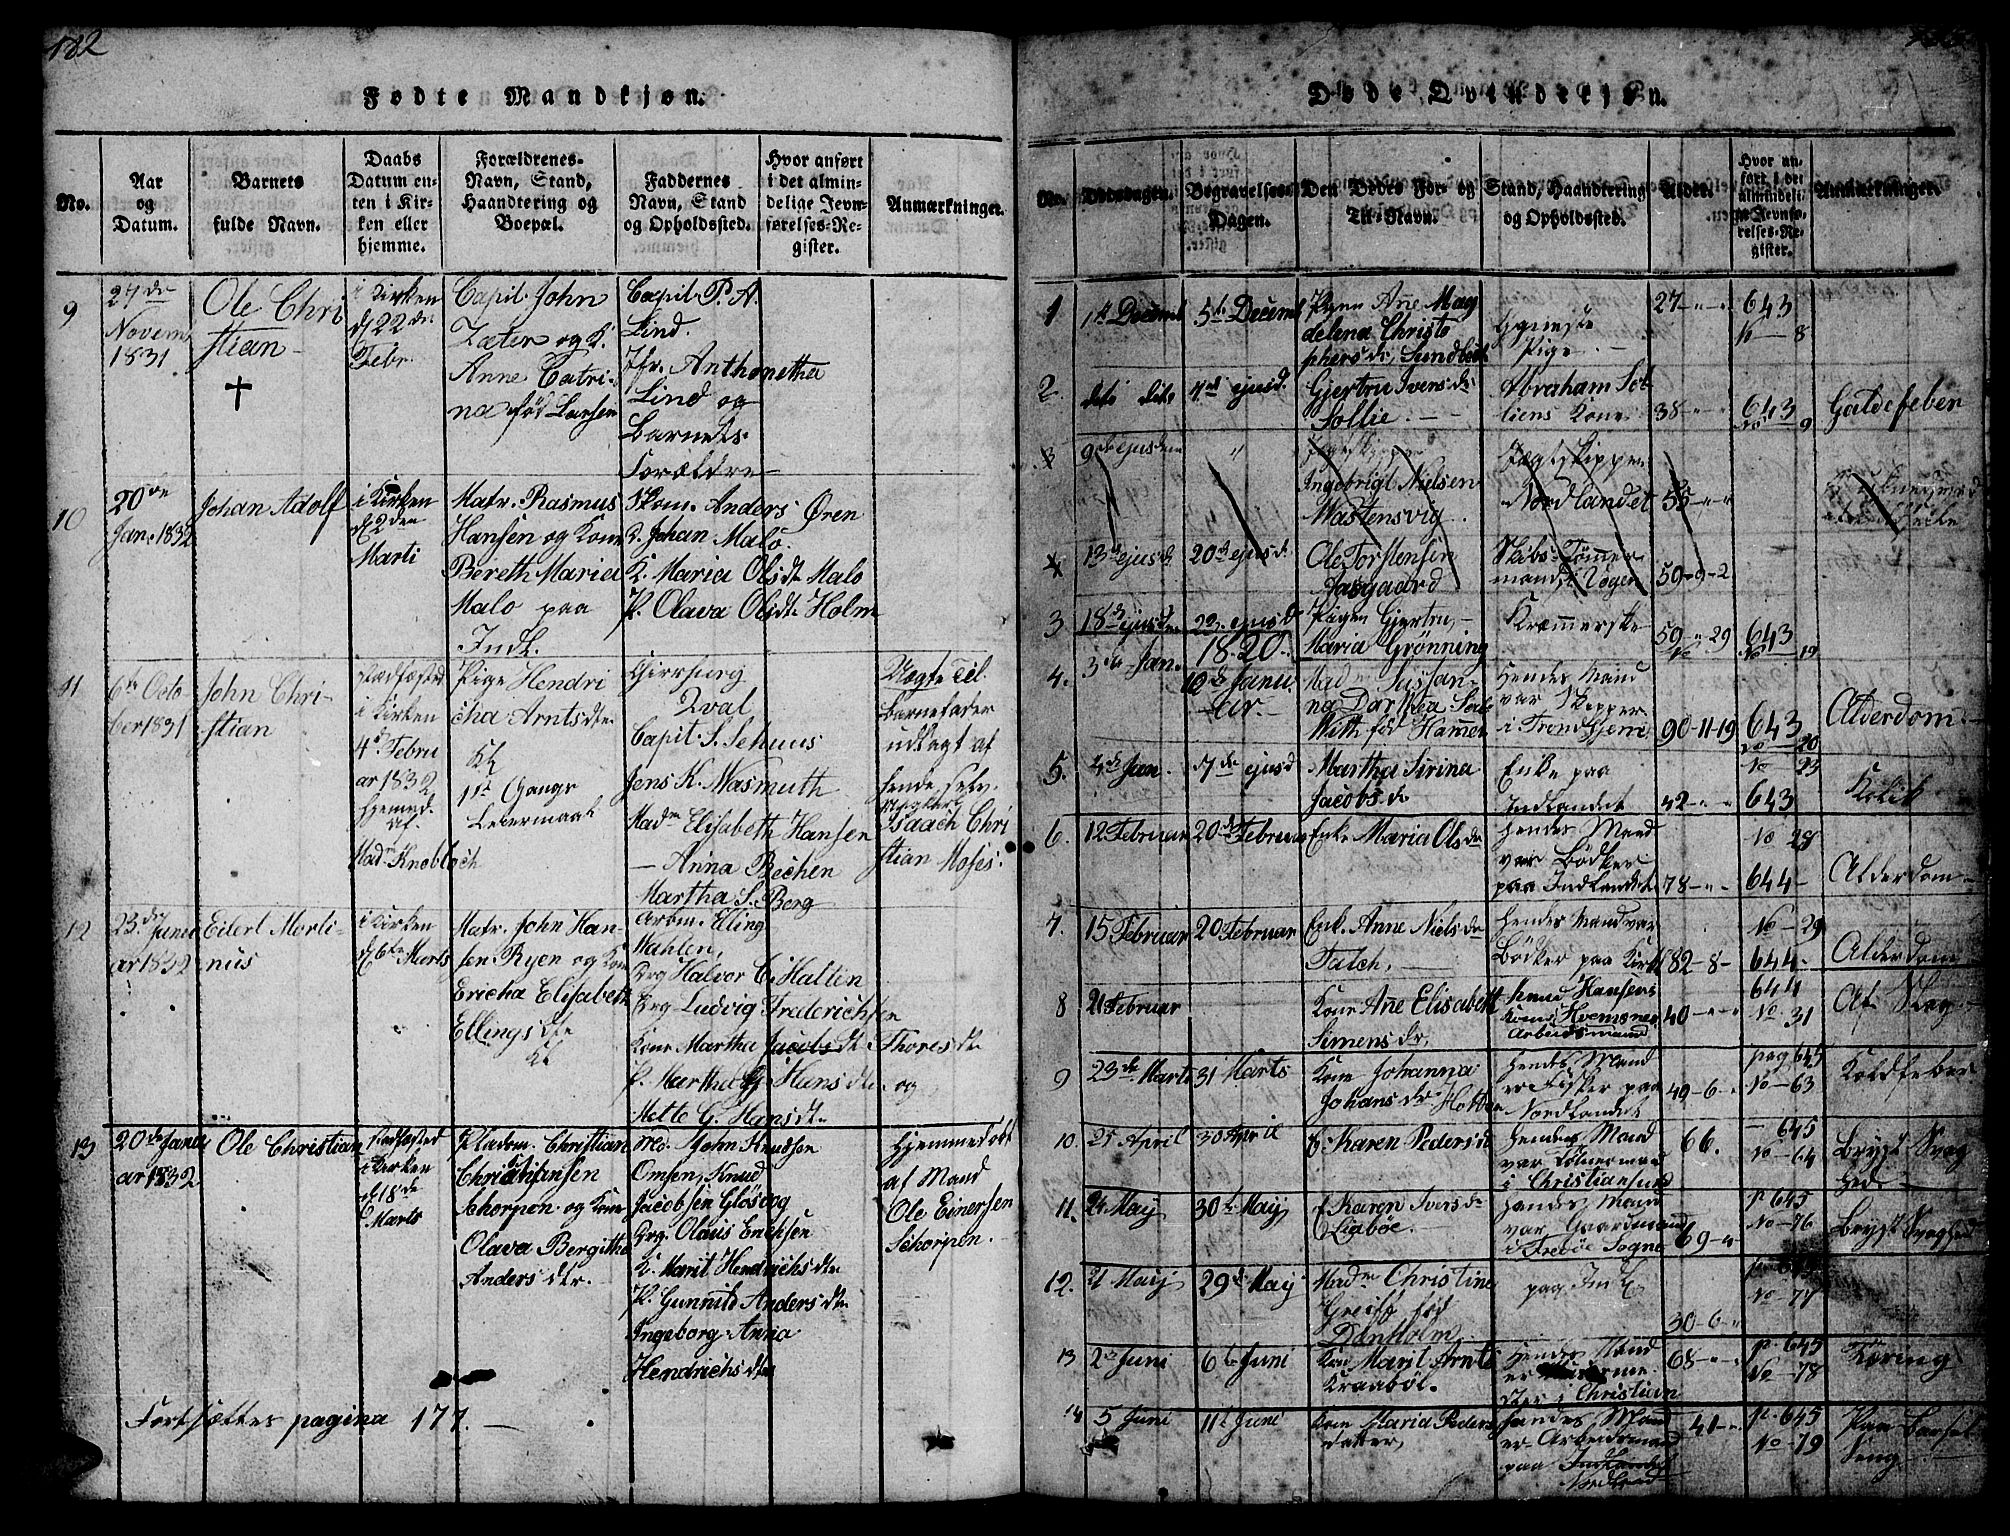 182
Fødte Mandkjøn.
No.
Aar
og
Datum.
Barnets
fulde Navn.
Daabs
Datum en-
ten i Kir-
ken eller
hjemme.
Forældrenes
Navn, Stand,
Haandtering og
Boepæl.
Faddernes
Navn, Stand
og Opholdssted.
Hvor anført
i det almin-
delige Jevn-
førelses-Re-
gister.
Anmærkninger.
9
27de
Novemb
1831
Ole Chri
stian
i Kirken
d 22de
Febr.
Capit. John
Zæter og K.
Anne Catri-
na fød Larsen
Capit. P. A.
Lind.
Jfr. Anthonetha
Lind og
Barnets
Forældre
10
20de
Jan. 1832
Johan Adolf
i Kirken
d 2den
Marti
Matr. Rasmus
Hansen og Kone
Bereth Maria
Malo paa
Indl.
Skom. Anders Øren
P. Johan Malo.
K. Maria Olsdt Malo
P. Olava Olsdt Holm
11
6te Octo
ber 1831
John Chri-
stian
stadfæsted
i Kirken
4de Febru
ar 1832
hjemed.
af
Mad Knobloch
Pige Hendri
cha Arntsdtr
1st Gangs
Leiermaal
Qval
Capit. S. Schuus
Jens K. Wasmuth
Madm Elisabeth Hansen
— Anna Bechen
Martha S. Berg
Uægte Til.
Barnefader
udlagt af
hende selv
Isaach Chri
stian Moses.
12
23de Janu
ar 1832
Eilert Morti-
nus
i Kirken
d 6te Marts
Matr. John Han-
sen Ryen og Kone
Ericha Elisabeth
Ellingsdtr
Arbm. Elling
Wahlen,
Brg Halvor C. Halten
Brg Ludvig Frederichsen
Kone Martha Jacobsdtr Thoresdtr
P. Martha G. Hansdtr og
Mette G. Hansdtr
13
20de Janu
ar 1832
Ole Christian
stadfæsted
i Kirken
d 18de
Marts
Christian
Christiansen
Schorpen og Kone
Olava Bergithe
Andersdtr.
John Knudsen
Omsen, Knud
Jacobsen Gløsvog
Brg. Olaus Erichsen
K. Marit Hendrichsdtr
P. Gunnild Andersdtr
Ingeborg Anna
Hendrichsdtr
Hjemmedøbt
af Mand
Ole Einersen
Schorpen.
Fortsættes pagina 177.
Døde Qvindekjøn.
No.
Dødsdagen.
Begravelses-
Dagen.
Den Dødes For- og
Til-Navn.
Stand, Haandtering
og Opholdssted.
Alder.
Hvor an-
ført i det
almindeli-
ge Jevnfø-
relses-Re-
gister.
Anmærkninger.
1
1st Decemb
5te Decemb
Pigen Ane Mag
delena Christo
phersdr. Sundbøt
Pige.
27
643
No 8
2
dito dito
7de ejusd.
Gjertru Iversdr
Sollie.
Abraham Sol
liens Kone
38
643
No 9
Galdefeber
3
9de ejusdem
Ingebrigt Nielsen
Wastensvig.
Jægtskipper
Nordlandet
55
13de ejusd.
20de ejusd.
Ole Torstensen
Aasgaard
Skibs-Tømmer
mand i Vågen
59-9-2
3
18de ejusdem
22. ejusd.
Pigen Gjertru
Maria Grønning
Kræmmerske
59 29
643
No 19
1820.
4.
3de Jan.
10de Janu.
ar.
Madm Susan-
na Dorthea
With fød Hammer
Hendes Mand
var Skipper
i Trondhjem
90-11-19
643
No 20
Alderdom.
5.
4de Jan.
7de ejusd
Martha Sirina
Jacobsdr
Enke paa
Indlandet
42
No 23
643
Kolik
6.
12 Februar
20de Februar
Enke Maria Olsdr
Hendes Mand
var Bødker
paa Indlandet
78
No 28
644
Alderdom
7.
15 Februar
20 Februar
Enk. Anne Nielsdr
Falch.
Hendes Mand var
Bødker paa Kirkl
82-8-
No 29
644
Alderdom
8
21 Februar
Kone Ane Elisabeth
Simensdr.
Hansens
Kone
Arbeidsmand
40
644
No 31
9
23de Marts
31 Marts
Kone Johanna
Johansdr
Hendes Mand
er Fisker paa
Nordlandet
49-6-
pag 645
No 63
Koldfeber
10
25 April
30 April
Karen Pedersdr
Hendes Mand
var Tømmermand
i Christiansund
66.
645
No 64
Bryst Svag
hed
11.
24 May
30te May
Karen Iversdr
Ligbøe.
Hendes Mand
var Gaardmand
i Fredøe Sogne
69
p 645
No 76
Bryst Svaghed
12.
21 May
29de May
Madm Christine
Greiff fød
Danholm
paa Indl.
30-6-
No 77
13
2de Juni
6te Juni
Kone Marit Arnts
Kraabøl.
Hendes Mand
i Christian
68
p 645
No 78
Tæring
14
5 Juni
11te Juni
Kone Maria Peders
datter,
Hendes Mand
er Arbeidsmand
paa Indlandet
Nordland
41
p. 645
No 79
Paa Barsel
Seng